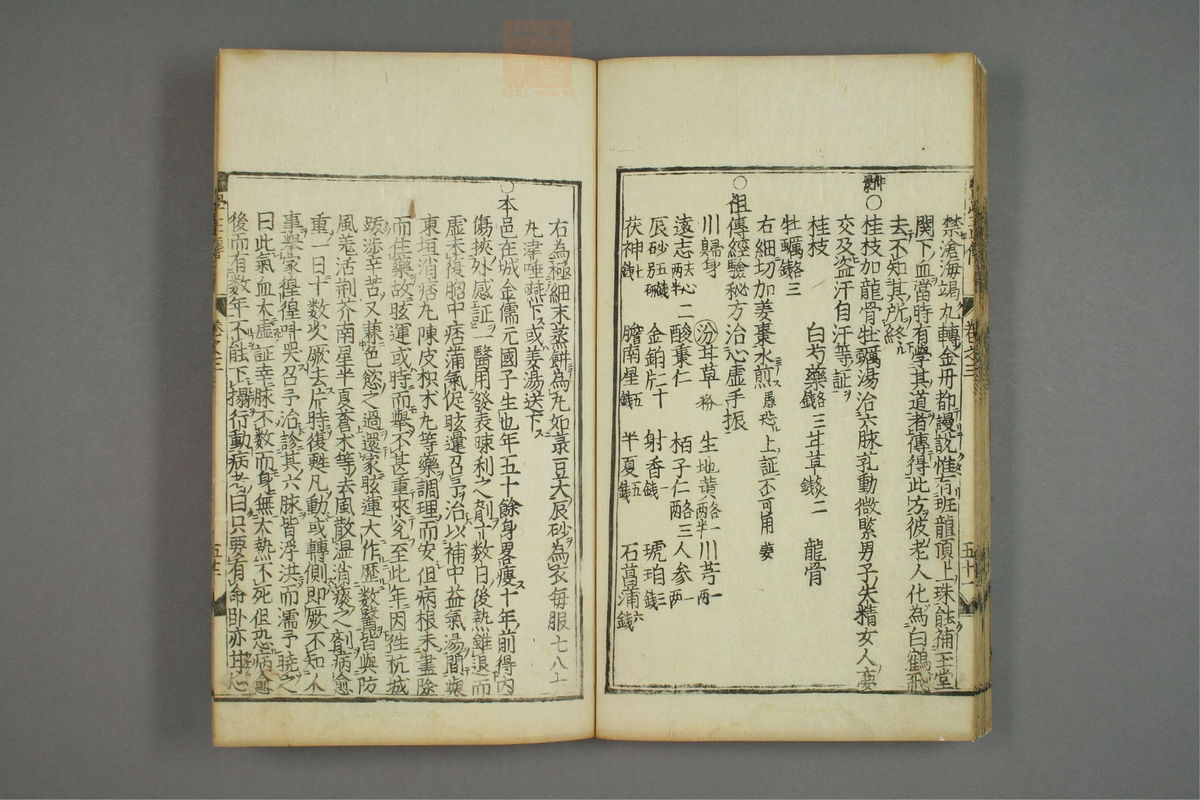 禁滄海竭九轉金丹都謾說惟有班龍頂上珠能補玉堂
関下血當時有學其道者傳得此方彼老人化為白鶴飛
去不知其所終
○桂枝加龍骨牡蠣湯治六脉乳動微緊男子失精女人夢
交及盗汗自汗等証
桂枝 白芍藥 三 甘草 二 龍骨
牡蠣 三
右細切加姜棗水煎 愚恐上証不可用姜
○祖傳經驗秘方治心虚手振
川歸身 甘草 生地黄 川芎
遠志 去心 酸棗仁 二 栢子仁 三 人参
辰砂 金鉑 片十 射香 琥珀 三
茯神 七 膽南星 五 半夏 五 石菖蒲 六
右為極細末蒸餅為丸如菉豆大辰砂為衣每服七八十
九津唾嚥下或姜湯送下
○本邑在城金儒元國子生也年五十餘身畧瘦十年前得内
傷挾外感証一醫用發表踈利之剤十数日後熱雖退而
虚未復胸中痞滿氣促眩運召予治以補中益氣湯間與
東垣消痞丸陳皮枳朮九等藥調理而安但病根未盡除
而住藥故眩運或時而舉不甚重來至此年因徃杭城
跋渉辛苦又兼色慾之過還家眩運大作歴数醫皆與防
風羌活荊芥南星半夏蒼朮等去風散湿消痰之剤病愈
重一日十数次厥去片時復甦凡動或轉側即厥不知人
事舉家徨徨呌哭召予治診其六脉皆浮洪而濡予曉之
曰此氣血大虚証幸脉不数而身無大熱不死但恐病愈
後而有数年不能下榻行動病者曰只要有命卧亦甘心